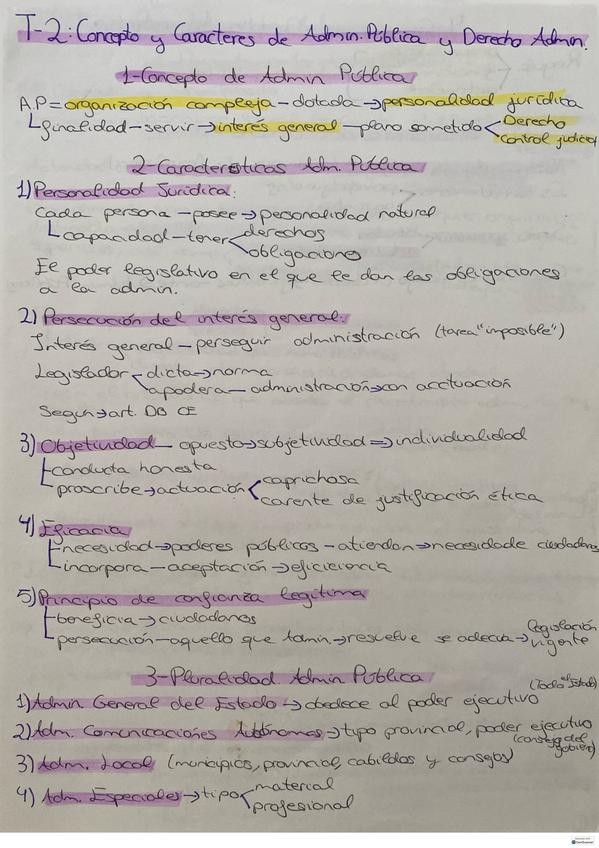 T-2: Concepto y Caracteres de Admin. Pública y Derecho Admin.
1-Concepto de Admin Pública
A.P = organización compleja - dotada → personalidad jurídica
finalidad - servir → interés general - plano sometido < Derecho
control judicial
2-Características Adm. Pública
1) Personalidad Jurídica:
Cada persona - posee → personalidad natural
capacidad - tener < derechos
obligaciones
El poder legislativo en el que le dan las obligaciones
a la admin.
2) Persecución del interés general:
Interés general - perseguir administración (tarea "imposible")
Legislador - dicta → norma
apodera - administración → con acctuación
Segun → art. DB CE
3) Objetividad - opuesto → subjetividad ⇒ individualidad
conducta honesta
proscribe → actuación < caprichosa
carente de justificación ética
4) Eficacia
necesidad → poderes públicos - atiendan → necesidade ciudadanos
incorpora - aceptación → eficiciencia
5) Principio de confianza legítima
beneficia → ciudadanos
persecución - aquello que tamin → resuelve se adecua → legislación
vigente
3-Pluralidad Admin Pública
1) Admin General del Estado → obedece al poder ejecutivo (Todo el Estado)
2) Adm. Comunicaciones Autónomas → tipo provincial, poder ejecutivo
(consejo del gobierno)
3) Adm. Local (municipios, provincial, cabildos y consejos)
4) Adm. Especiales → tipo < material
profesional